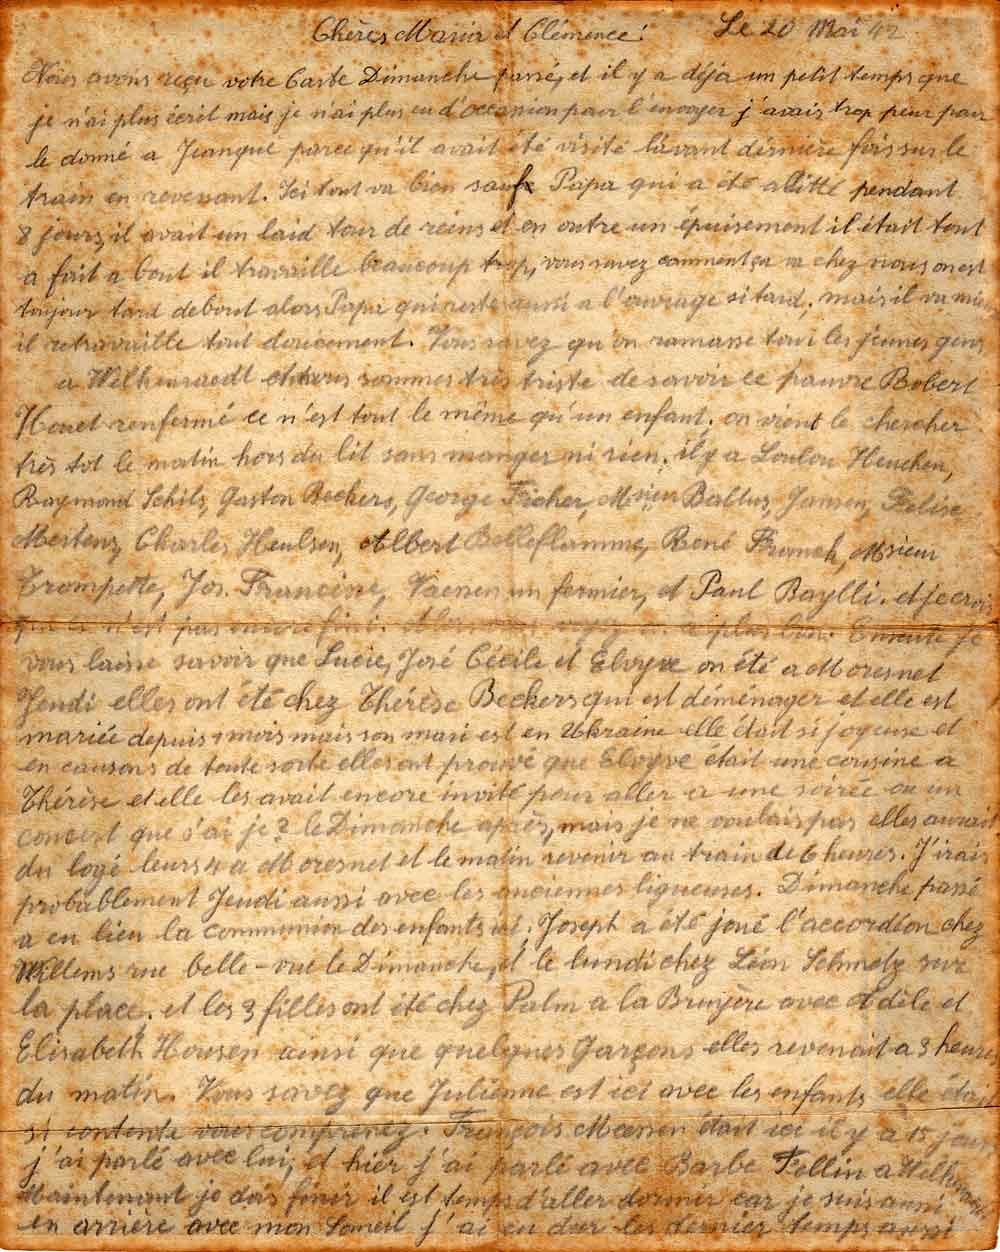 Chères Maria et Clémence! Le 20 Mai 42
Nous avons reçu votre Carte Dimanche passé, et il y a déja un petit temps que
je n'ai plus écrit mais je n'ai plus eu d'occasion pour l'envoyer j'avais trop peur pour
le donné a Jeanque parce qu'il avait été visité l'avant dérnière fois sur le
train en revenant. Ici tout va bien sauf Papa qui a été alitté pendant
8 jours, il avait un laid tour de reins et en outre un épuisement il était tout
a fait a bout il travaille beaucoup trop, vous savez comment ça va chez nous on est
toujour tard debout alors Papa qui reste aussi a l'ouvrage si tard, mais il va mieu
il retravaille tout doucement. Vous savez qu'on ramasse tout les jeunes gens
a Welkenraedt et nous sommes très triste de savoir ce pauvre Robert
Houet renfermé ce n'est tout le même qu'un enfant. on vient le chercher
très tot le matin hors du lit sans manger ni rien, il y a Loulou Heuchen,
Raymond Schils, Gaston Beckers, George Ficher, Msieur Baltus, Jansen, Felise
Mertens, Charles Heulsen, Albert Belleflamme, René Franck, Msieur
Trompette, Jos. Francisse, Vaessen un fermier, et Paul Baylli. et je crois
n'est pas encore fini. plus loin. Ensuite je
vous laisse savoir que Lucie, José Cécile et Elvyre on été a Moresnet
Jeudi elles ont été chez Thérèse Beckers qui est déménager et elle est
mariée depuis 1 mois mais son mari est en Ukraine elle était si joyeuse et
en causans de toute sorte elles ont prouvé que Elvyre était une cousine a
Thérèse et elle les avait encore invité pour aller a une soirée ou un
concert que s'ai je? le Dimanche après, mais je ne voulais pas elles aurait
du logé leurs 4 a Moresnet et le matin revenir au train de 6 heures. J'irais
probablement Jeudi aussi avec les anciennes ligueuses. Dimanche passé
a eu lieu la communion des enfants ici. Joseph a été joué l'accordéon chez
Willems rue belle-vue le Dimanche, et le lundi chez Léon Schmetz sur
la place. et les 3 filles ont été chez Palm a la Bruyère avec Adèle et
Elisabeth Housen ainsi que quelques Garçons elles revenait a 3 heures
du matin. Vous savez que Julienne est ici avec les enfants elle était
si contente vous comprenez. François Maessen était ici il y a 15 jours
j'ai parlé avec lui, et hier j'ai parlé avec Barbe Fellin a
Maintenant je dois finir il est temps d'aller dormir car je suis aussi
en arrière avec mon Someil j'ai eu dur les dernier temps aussi